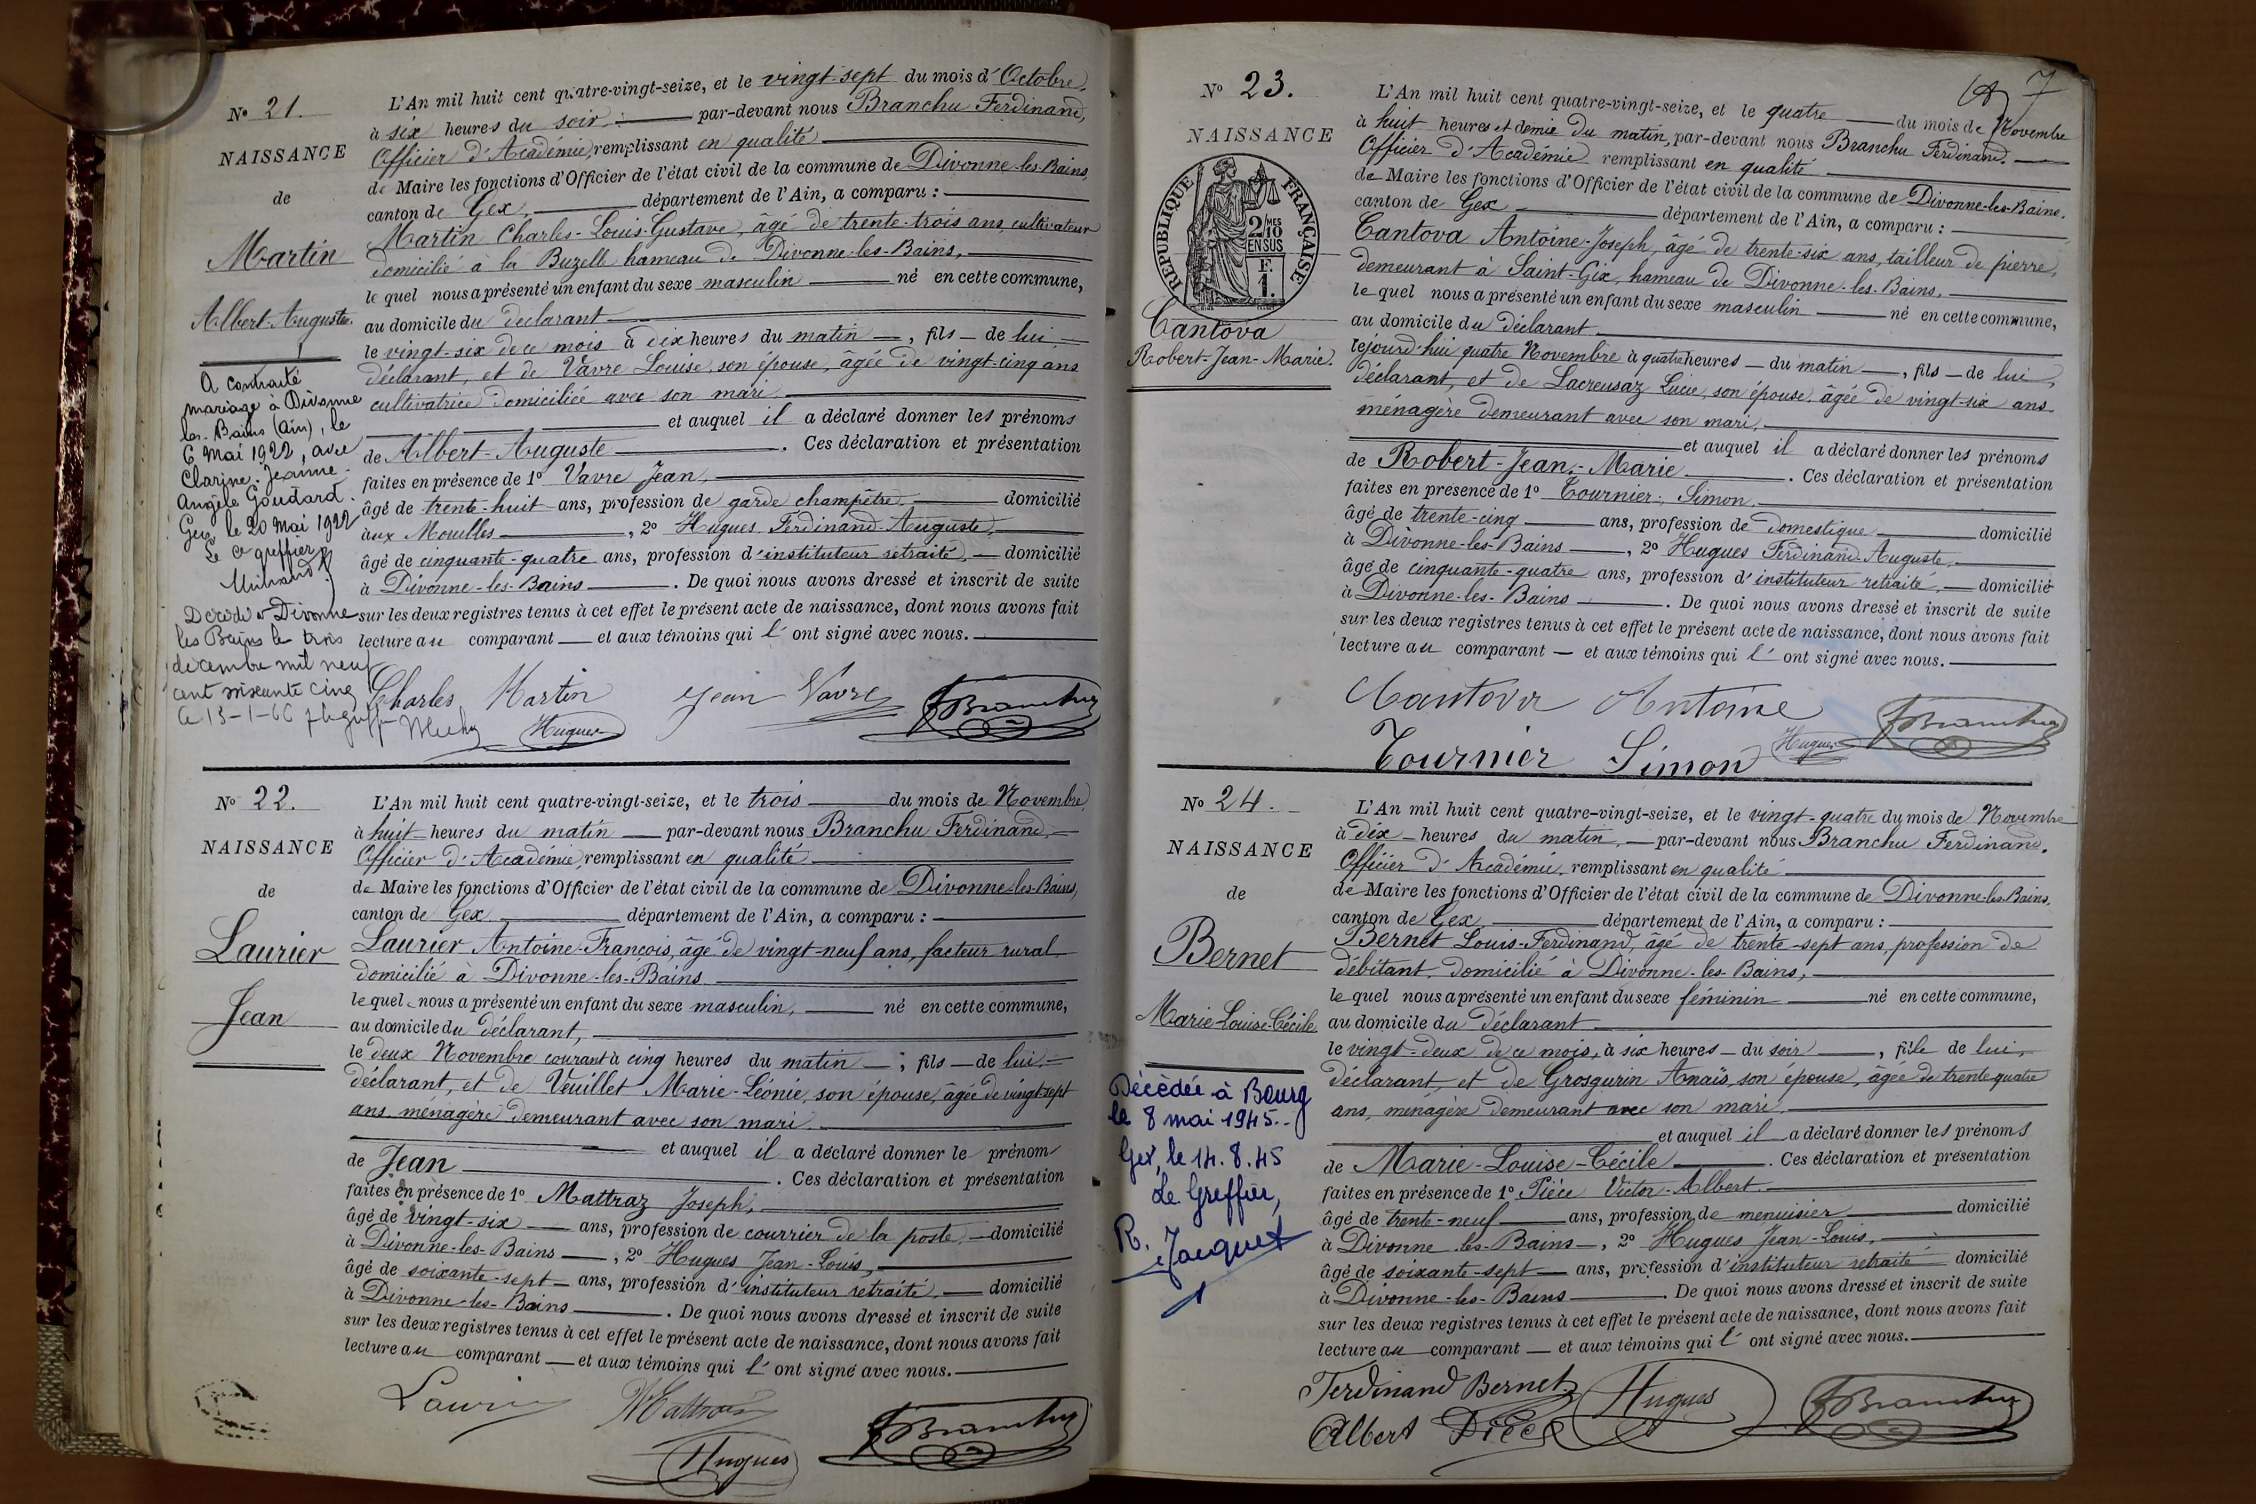 No 21.
NAISSANCE
de
Martin
Albert-Auguste.
A contracté
mariage à Divonne
les-Bains (Ain), le
6 mai 1922, avec
Clarine-Jeanne-
Angèle Goudard.
Gex le 20 mai 1922
Le greffier
Décédé à Divonne
les Bains le trois
décembre mil neuf
cent soixante cinq
Le 13-1-66
L'An mil huit cent quatre-vingt-seize, et le vingt-sept du mois d'Octobre,
à six heures du soir, par-devant nous Branchu Ferdinand,
Officier d'Académie, remplissant en qualité
de Maire les fonctions d'Officier de l'état civil de la commune de Divonne-les-Bains,
canton de Gex, département de l'Ain, a comparu :
Martin Charles-Louis-Gustave, âgé de trente-trois ans, cultivateur
domicilié à la Buzelle hameau de Divonne-les-Bains,
le quel nous a présenté un enfant du sexe masculin né en cette commune,
au domicile du déclarant
le vingt-six de ce mois à dix heures du matin, fils de lui
déclarant, et de Vavre Louise, son épouse, âgée de vingt-cinq ans
cultivatrice domiciliée avec son mari.
et auquel il a déclaré donner les prénoms
de Albert-Auguste. Ces déclaration et présentation
faites en présence de 1º Vavre Jean,
âgé de trente-huit ans, profession de garde champêtre, domicilié
aux Mouilles, 2º Hugues Ferdinand-Auguste,
âgé de cinquante-quatre ans, profession d'instituteur retraité, domicilié
à Divonne-les-Bains. De quoi nous avons dressé et inscrit de suite
sur les deux registres tenus à cet effet le présent acte de naissance, dont nous avons fait
lecture au comparant et aux témoins qui l'ont signé avec nous.
Charles Martin Jean Vavre FBranchu
Hugues
No 22.
NAISSANCE
de
Laurier
Jean
L'An mil huit cent quatre-vingt-seize, et le trois du mois de Novembre
à huit heures du matin par-devant nous Branchu Ferdinand,
Officier d'Académie, remplissant en qualité
de Maire les fonctions d'Officier de l'état civil de la commune de Divonne-les-Bains,
canton de Gex département de l'Ain, a comparu :
Laurier Antoine-François, âgé de vingt-neuf ans, facteur rural
domicilié à Divonne-les-Bains
le quel nous a présenté un enfant du sexe masculin, né en cette commune,
au domicile du déclarant,
le deux Novembre courant à cinq heures du matin ; fils de lui
déclarant, et de Veuillet Marie-Léonie, son épouse, âgée de vingt-sept
ans ménagère demeurant avec son mari
et auquel il a déclaré donner le prénom
de Jean. Ces déclaration et présentation
faites en présence de 1º Mattraz Joseph,
âgé de vingt-six ans, profession de courrier de la poste domicilié
à Divonne-les-Bains, 2º Hugues Jean-Louis,
âgé de soixante-sept ans, profession d'instituteur retraité, domicilié
à Divonne-les-Bains. De quoi nous avons dressé et inscrit de suite
sur les deux registres tenus à cet effet le présent acte de naissance, dont nous avons fait
lecture au comparant et aux témoins qui l'ont signé avec nous.
Laurier Mattraz FBranchu
Hugues
7
No 23.
NAISSANCE
RÉPUBLIQUE FRANÇAISE
2 MES
10
EN SUS
F.
1.
Cantova
Robert-Jean-Marie.
L'An mil huit cent quatre-vingt-seize, et le quatre du mois de Novembre
à huit heures et demie du matin, par-devant nous Branchu Ferdinand.
Officier d'Académie remplissant en qualité
de Maire les fonctions d'Officier de l'état civil de la commune de Divonne-les-Bains.
canton de Gex département de l'Ain, a comparu :
Cantova Antoine-Joseph, âgé de trente-six ans, tailleur de pierre,
demeurant à Saint-Gix, hameau de Divonne-les-Bains,
le quel nous a présenté un enfant du sexe masculin né en cette commune,
au domicile du déclarant
cejourd'hui quatre Novembre à quatre heures du matin, fils de lui,
déclarant, et de Lacreusaz Lucie, son épouse, âgée de vingt-six ans
ménagère demeurant avec son mari,
et auquel il a déclaré donner les prénoms
de Robert-Jean-Marie. Ces déclaration et présentation
faites en présence de 1º Tournier, Simon
âgé de trente-cinq ans, profession de domestique domicilié
à Divonne-les-Bains, 2º Hugues Ferdinand-Auguste,
âgé de cinquante-quatre ans, profession d'instituteur retraité, domicilié
à Divonne-les-Bains. De quoi nous avons dressé et inscrit de suite
sur les deux registres tenus à cet effet le présent acte de naissance, dont nous avons fait
lecture au comparant et aux témoins qui l'ont signé avec nous.
Cantova Antoine FBranchu
Tournier Simon Hugues
No 24.
NAISSANCE
de
Bernet
Marie-Louise-Cécile
Décédée à Bourg
le 8 mai 1945.
Gex, le 14.8.45
Le Greffier,
R. Jacquet
L'An mil huit cent quatre-vingt-seize, et le vingt-quatre du mois de Novembre
à dix heures du matin, par-devant nous Branchu Ferdinand.
Officier d'Académie, remplissant en qualité
de Maire les fonctions d'Officier de l'état civil de la commune de Divonne-les-Bains.
canton de Gex département de l'Ain, a comparu :
Bernet Louis-Ferdinand, âgé de trente-sept ans, profession de
débitant, domicilié à Divonne-les-Bains,
le quel nous a présenté un enfant du sexe féminin né en cette commune,
au domicile du déclarant
le vingt-deux de ce mois, à six heures du soir, fille de lui,
déclarant, et de Grosgurin Anaïs, son épouse, âgée de trente quatre
ans, ménagère demeurant avec son mari.
et auquel il a déclaré donner les prénoms
de Marie-Louise-Cécile. Ces déclaration et présentation
faites en présence de 1º Pièce Victor-Albert
âgé de trente-neuf ans, profession de menuisier domicilié
à Divonne-les-Bains, 2º Hugues Jean-Louis,
âgé de soixante-sept ans, profession d'instituteur retraité domicilié
à Divonne-les-Bains. De quoi nous avons dressé et inscrit de suite
sur les deux registres tenus à cet effet le présent acte de naissance, dont nous avons fait
lecture au comparant et aux témoins qui l'ont signé avec nous.
Ferdinand Bernet Hugues FBranchu
Albert Pièce